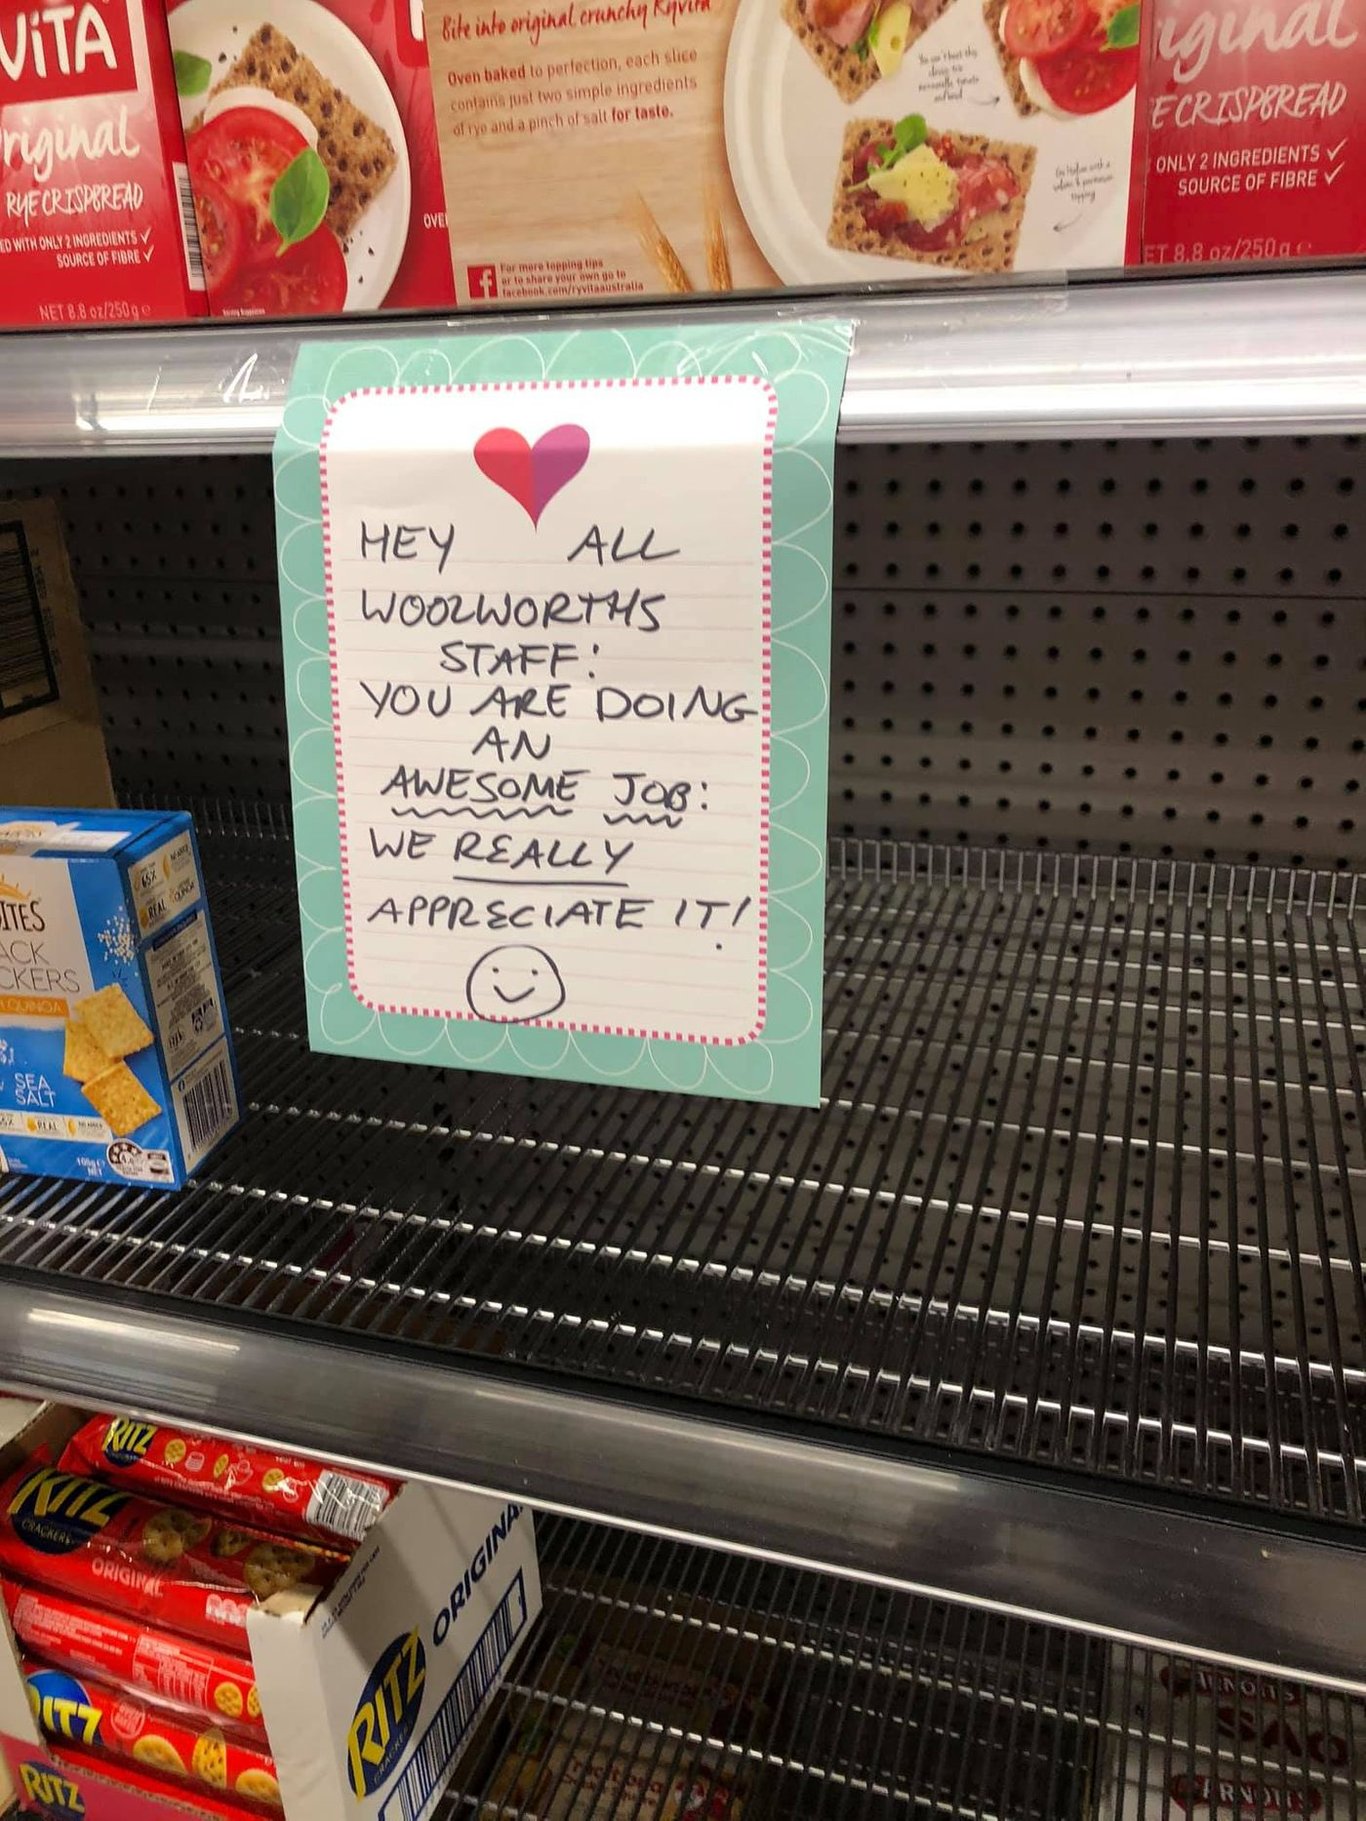 ViTA
riginal
RYE CRISPBREAD
ED WITH ONLY 2 INGREDIENTS ✓
SOURCE OF FIBRE ✓
NET 8.8 oz/250g e
OVE
Bite into original crunchy Ryvita
Oven baked to perfection, each slice
contains just two simple ingredients
of rye and a pinch of salt for taste.
For more topping tips
or to share your own go to
facebook.com/ryvitaaustralia
iginal
E CRISPBREAD
ONLY 2 INGREDIENTS ✓
SOURCE OF FIBRE ✓
ET 8.8 oz/250g e
HEY ALL
WOOLWORTHS
STAFF:
YOU ARE DOING
AN
AWESOME JOB:
WE REALLY
APPRECIATE IT!
ITES
ACK
CKERS
QUINOA
SEA
SALT
REAL
REAL
RITZ
RITZ
CRACKERS
ORIGINAL
RITZ
RITZ
ORIGINA
RITZ
ARNOTTS
SAO
ARNOTTS